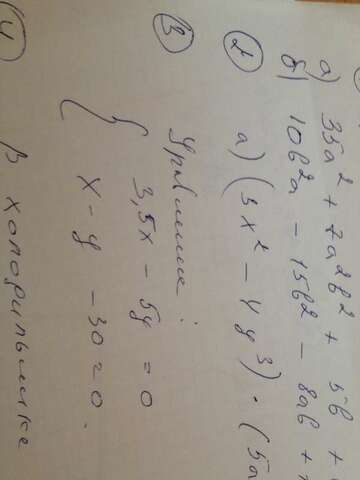 а) 35a² + 7a²b² + 5b +
б) 10b²a - 15b² - 8ab +
②
а) (3x² - 4y³) · (5a
③ Уравнение:
3,5x - 5y = 0
x - y - 30 = 0.
④ В холодильнике